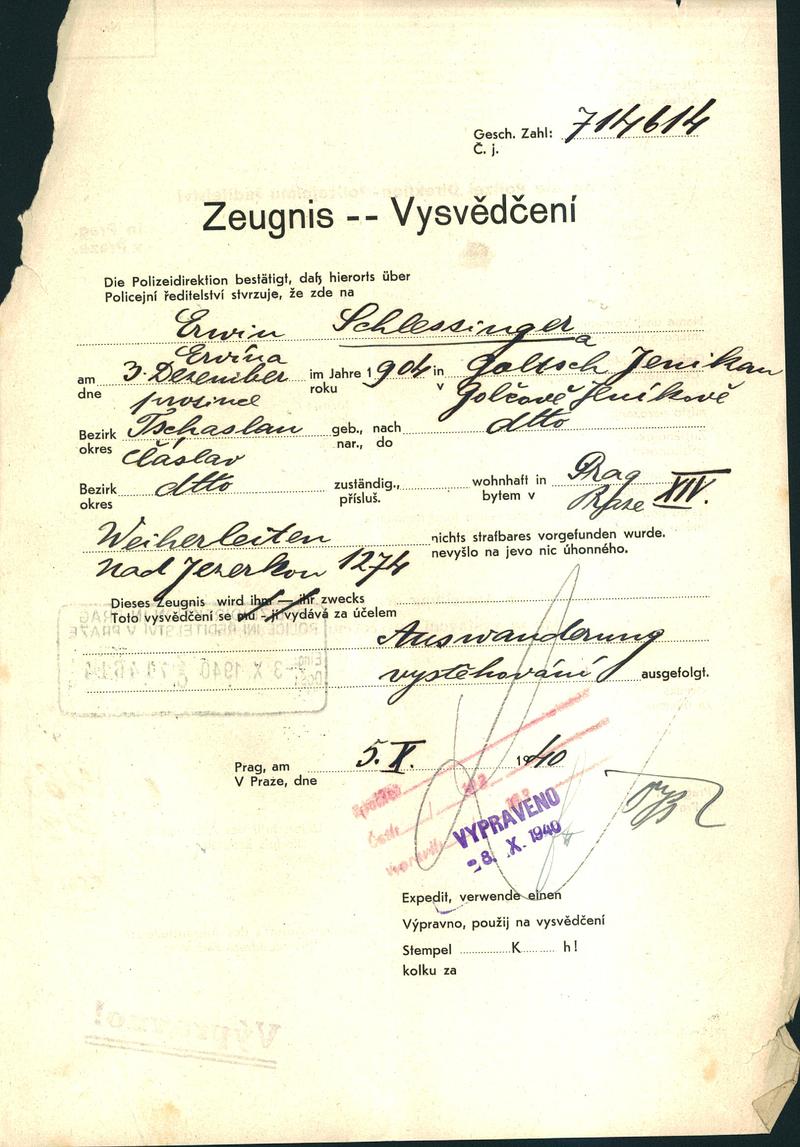 Gesch. Zahl: 714614
Č. j.
Zeugnis -- Vysvědčení
Die Polizeidirektion bestätigt, daß hierorts über
Policejní ředitelství stvrzuje, že zde na
Erwin Schlessinger a
Ervína
am 3. Dezember im Jahre 1904 in Goltsch Jenikau
dne prosince roku v Golčově Jeníkově
Bezirk Tschaslau geb., nach dtto
okres Čáslav nar., do
Bezirk dtto zuständig., wohnhaft in Prag XIV.
okres přísluš. bytem v Praze
Weiherleiten nichts strafbares vorgefunden wurde.
nad Jezerkou 1274 nevyšlo na jevo nic úhonného.
Dieses Zeugnis wird ihm — ihr zwecks
Toto vysvědčení se mu - jí vydává za účelem
Auswanderung
vystěhování ausgefolgt.
3. X. 1940 714614
Prag, am 5. X. 1940
V Praze, dne
VYPRAVENO
28. X. 1940
Expedit, verwende einen
Výpravno, použij na vysvědčení
Stempel K h!
kolku za
Vypraveno!